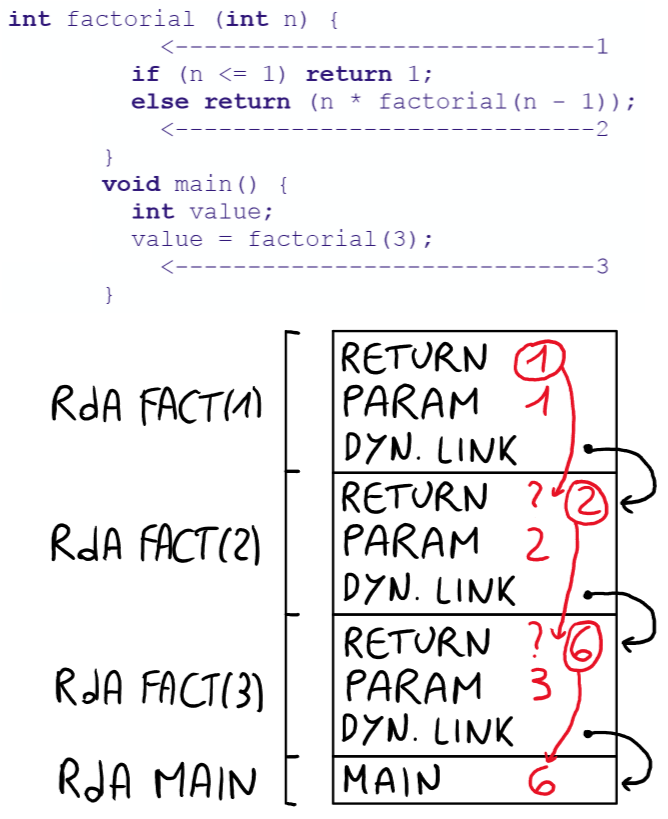 int factorial (int n) {
<----------------------------1
if (n <= 1) return 1;
else return (n * factorial(n - 1));
<----------------------------2
}
void main() {
int value;
value = factorial(3);
<----------------------------3
}
RdA FACT(1)
RETURN 1
PARAM 1
DYN. LINK
RdA FACT(2)
RETURN ? 2
PARAM 2
DYN. LINK
RdA FACT(3)
RETURN ? 6
PARAM 3
DYN. LINK
RdA MAIN
MAIN 6